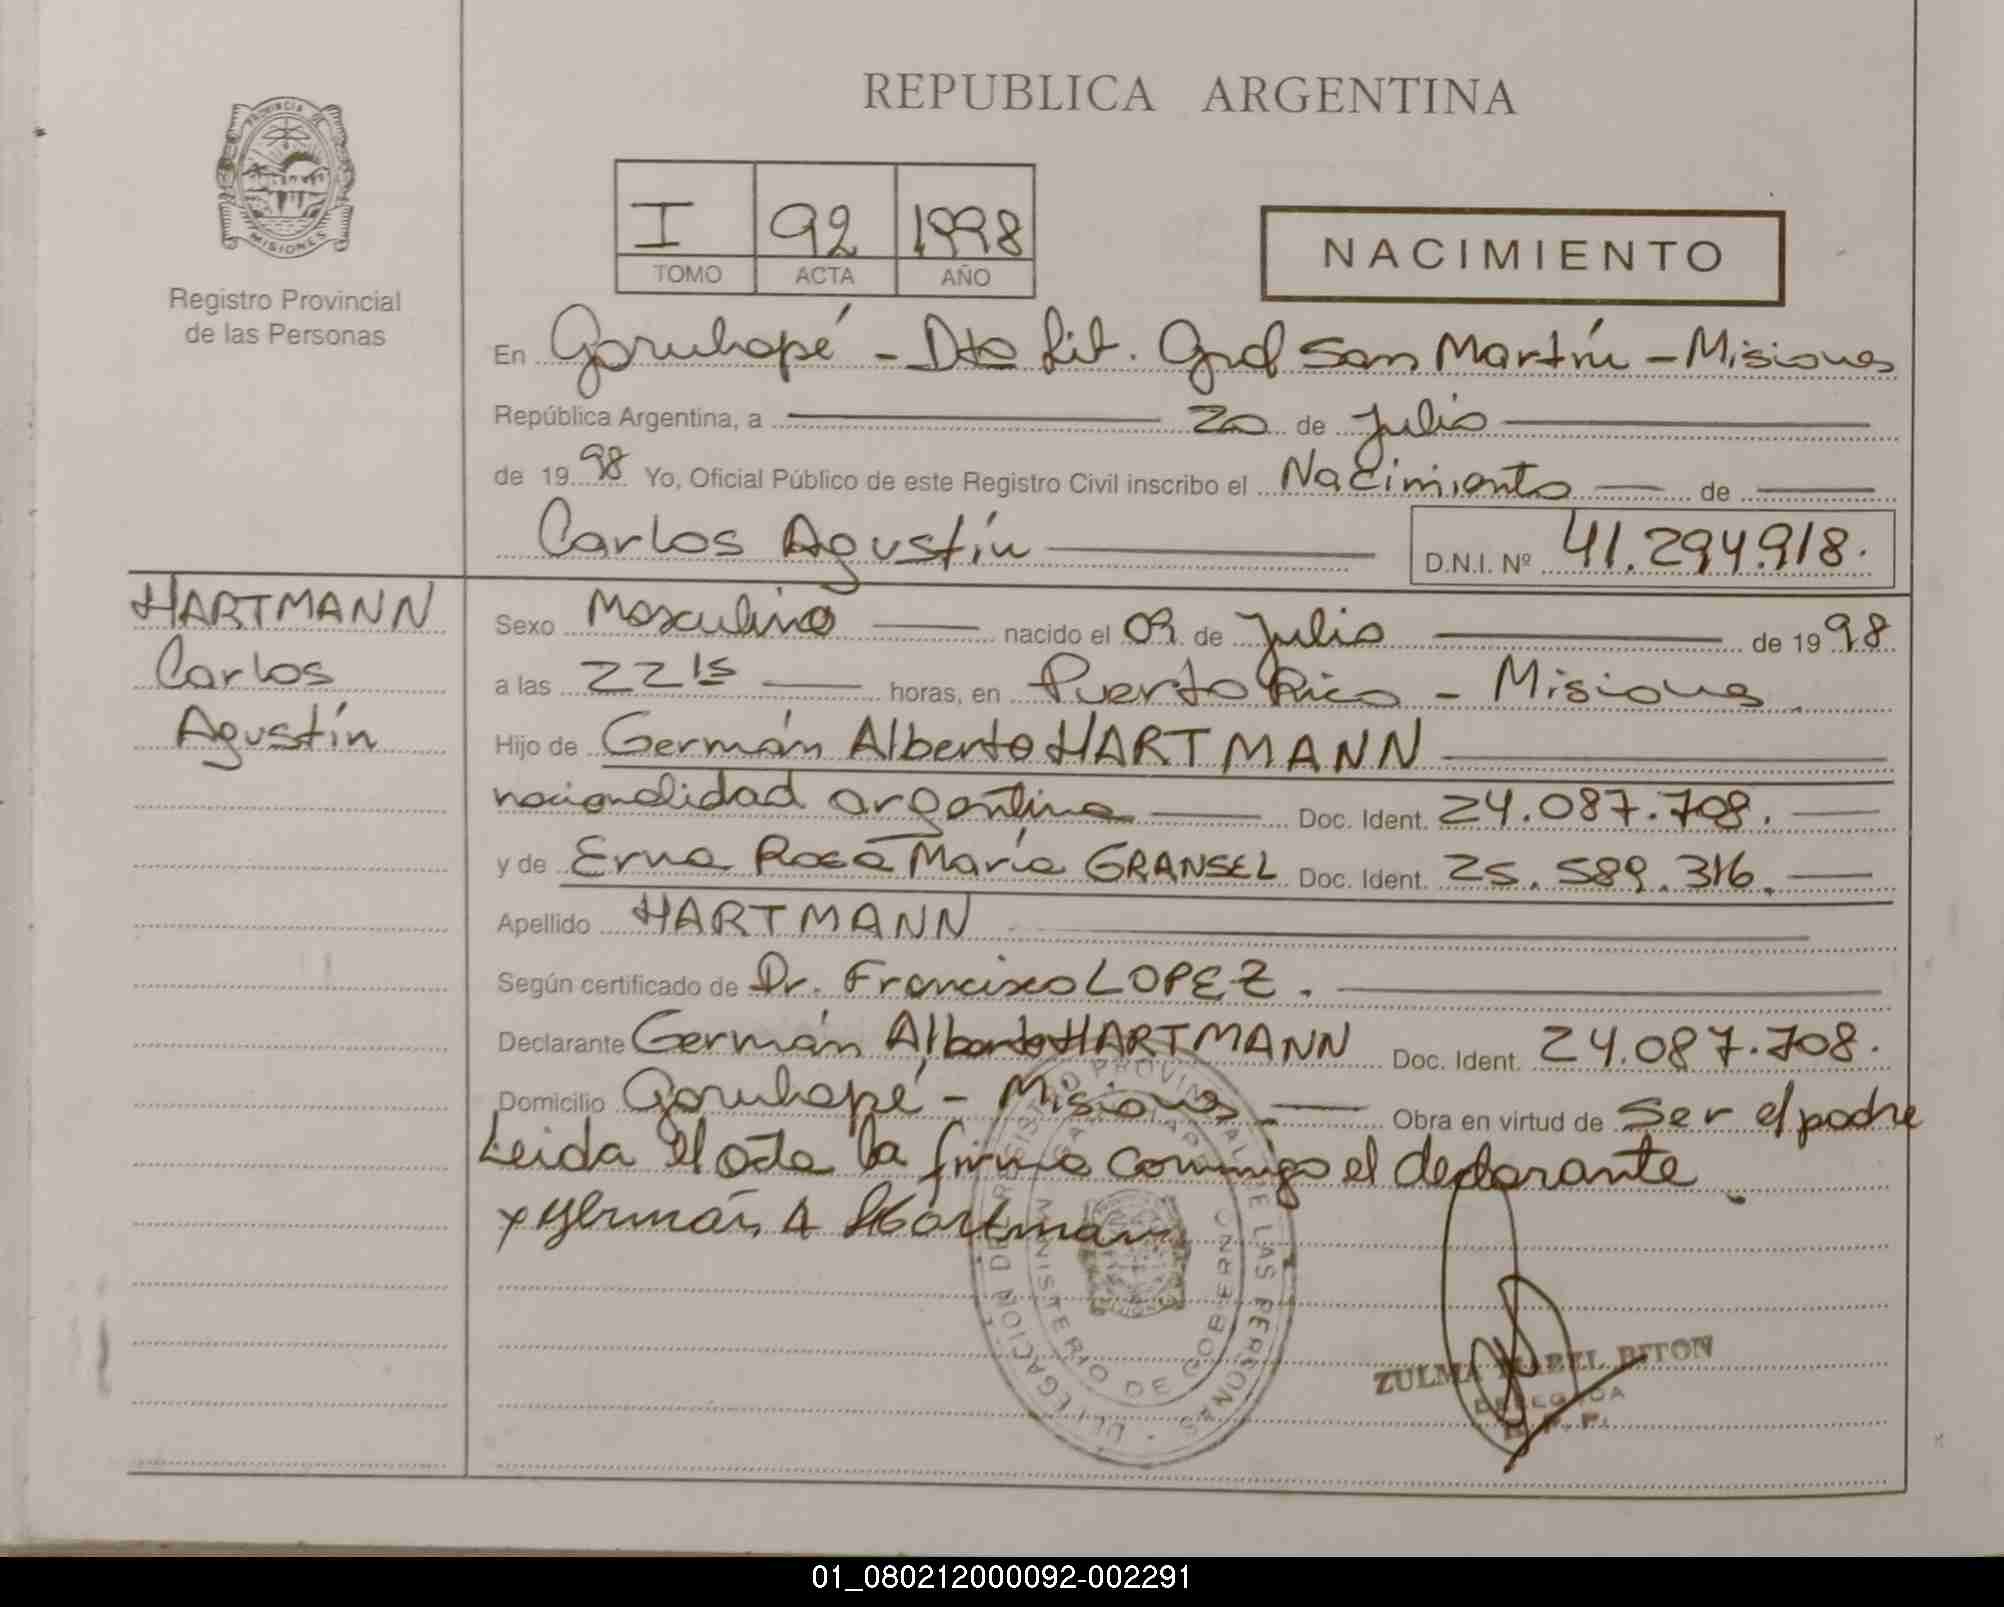 REPUBLICA ARGENTINA
PROVINCIA DE MISIONES
Registro Provincial
de las Personas
I 92 1998
TOMO ACTA AÑO
NACIMIENTO
En Garuhapé - Dto Lib. Gral San Martín - Misiones
República Argentina, a 20 de Julio
de 1998 Yo, Oficial Público de este Registro Civil inscribo el Nacimiento de
Carlos Agustín D.N.I. Nº 41.294.918.
HARTMANN
Carlos
Agustín
Sexo Masculino nacido el 09 de Julio de 1998
a las 22 15 horas, en Puerto Rico - Misiones
Hijo de Germán Alberto HARTMANN
nacionalidad argentina Doc. Ident. 24.087.708.
y de Erna Rosa María GRANSEL Doc. Ident. 25.589.316.
Apellido HARTMANN
Según certificado de Dr. Francisco LOPEZ.
Declarante Germán Alberto HARTMANN Doc. Ident. 24.087.708.
Domicilio Garuhapé - Misiones Obra en virtud de Ser el padre
Leida el acta la firma conmigo el declarante.
x Germán A Hartmann
DELEGACION DE REGISTRO PROVINCIAL DE LAS PERSONAS
MINISTERIO DE GOBIERNO
ZULMA ISABEL BITON
DELEGADA
01_080212000092-002291